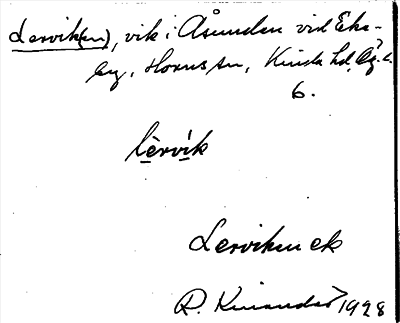 Lervik(en), vik i Åsunden vid Eke-
by, Horns sn, Kinda hd, Ög. l.
6.
lèrvìk
Lerviken ek
R. Kinander 1928